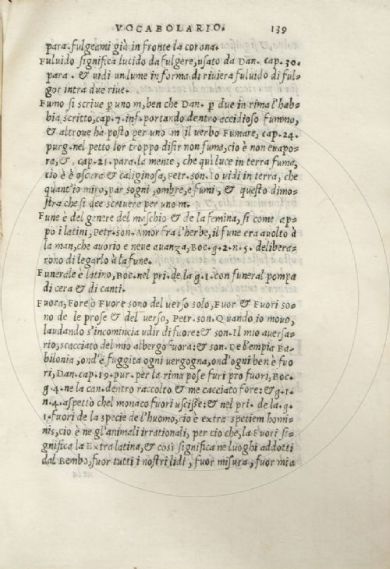 VOCABOLARIO. 139
para. fulgeami già in fronte la corona.
Fuluido significa lucido da fulgere, usato da Dan. cap. 30.
para. & uidi un lume in forma di riuiera fuluido di ful-
gor intra due riue.
Fumo si scriue p uno m, ben che Dan. p due in rima l'hab-
bia scritto, cap. 7. inf. portando dentro accidioso fummo,
& altroue ha posto per uno m il uerbo Fumare, cap. 24.
purg. nel petto lor troppo disir non fuma, cio è non euapo-
ra, &. cap. 21. para. la mente, che quì luce in terra fuma,
cio è è oscura & caliginosa, Petr. son. Io uidi in terra, che
quant'io miro, par sogni, ombre, e fumi, & questo dimo-
stra che si dee scriuere per uno m.
Fune è del genere del maschio & de la femina, si come ap-
po i latini, Petr. son. Amor fra l'herbe, il fune era auolto à
la man, che auorio e neue auanza, Boc. g. 2. n. 5. delibera-
rono di legarlo à la fune.
Funerale è latino, Boc. nel pri. de la g. 1. con funeral pompa
di cera & di canti.
Fuora, Fore o Fuore sono del uerso solo, Fuor & Fuori so-
no de le prose & del uerso, Petr. son. Quando io mouo,
laudando s'incomincia udir di fuore: & son. Il mio auersa-
rio, scacciato del mio albergo fuora: & son. De l'empia Ba-
bilonia, ond'è fuggita ogni uergogna, ond'ogni ben è fuo
ri, Dan. cap. 19. pur. per la rima pose furi pro fuori, Boc.
g. 4. ne la can. dentro raccolto & me cacciato fore: & g. 1.
n. 4. aspettò che'l monaco fuori uscisse: & nel pri. de la. g.
1. fuori de la specie de l'huomo, cio è extra speciem homi-
nis, cio è ne gl'animali irrationali, per cio che, la Fuori si-
gnifica la Extra latina, & così significa ne luoghi addotti
dal Bembo, fuor tutti i nostri lidi, fuor misura, fuor mia